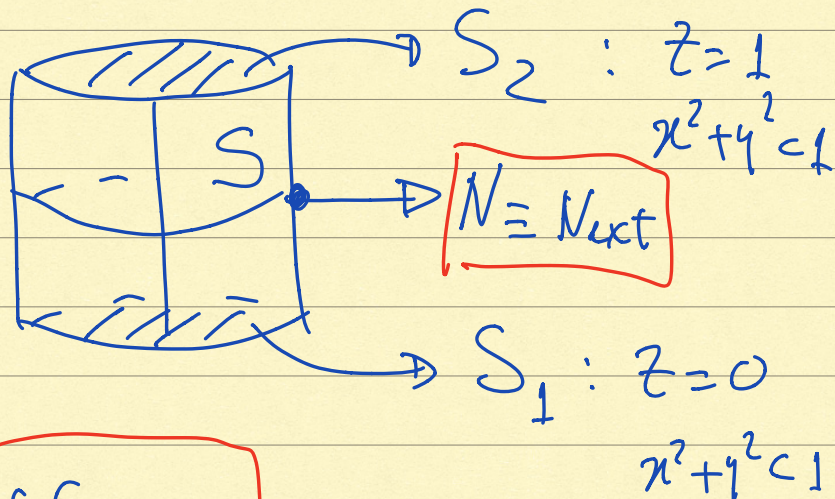 S₂ : z=1
x²+y²<1
S
N ≡ Next
S₁ : z=0
x²+y²<1